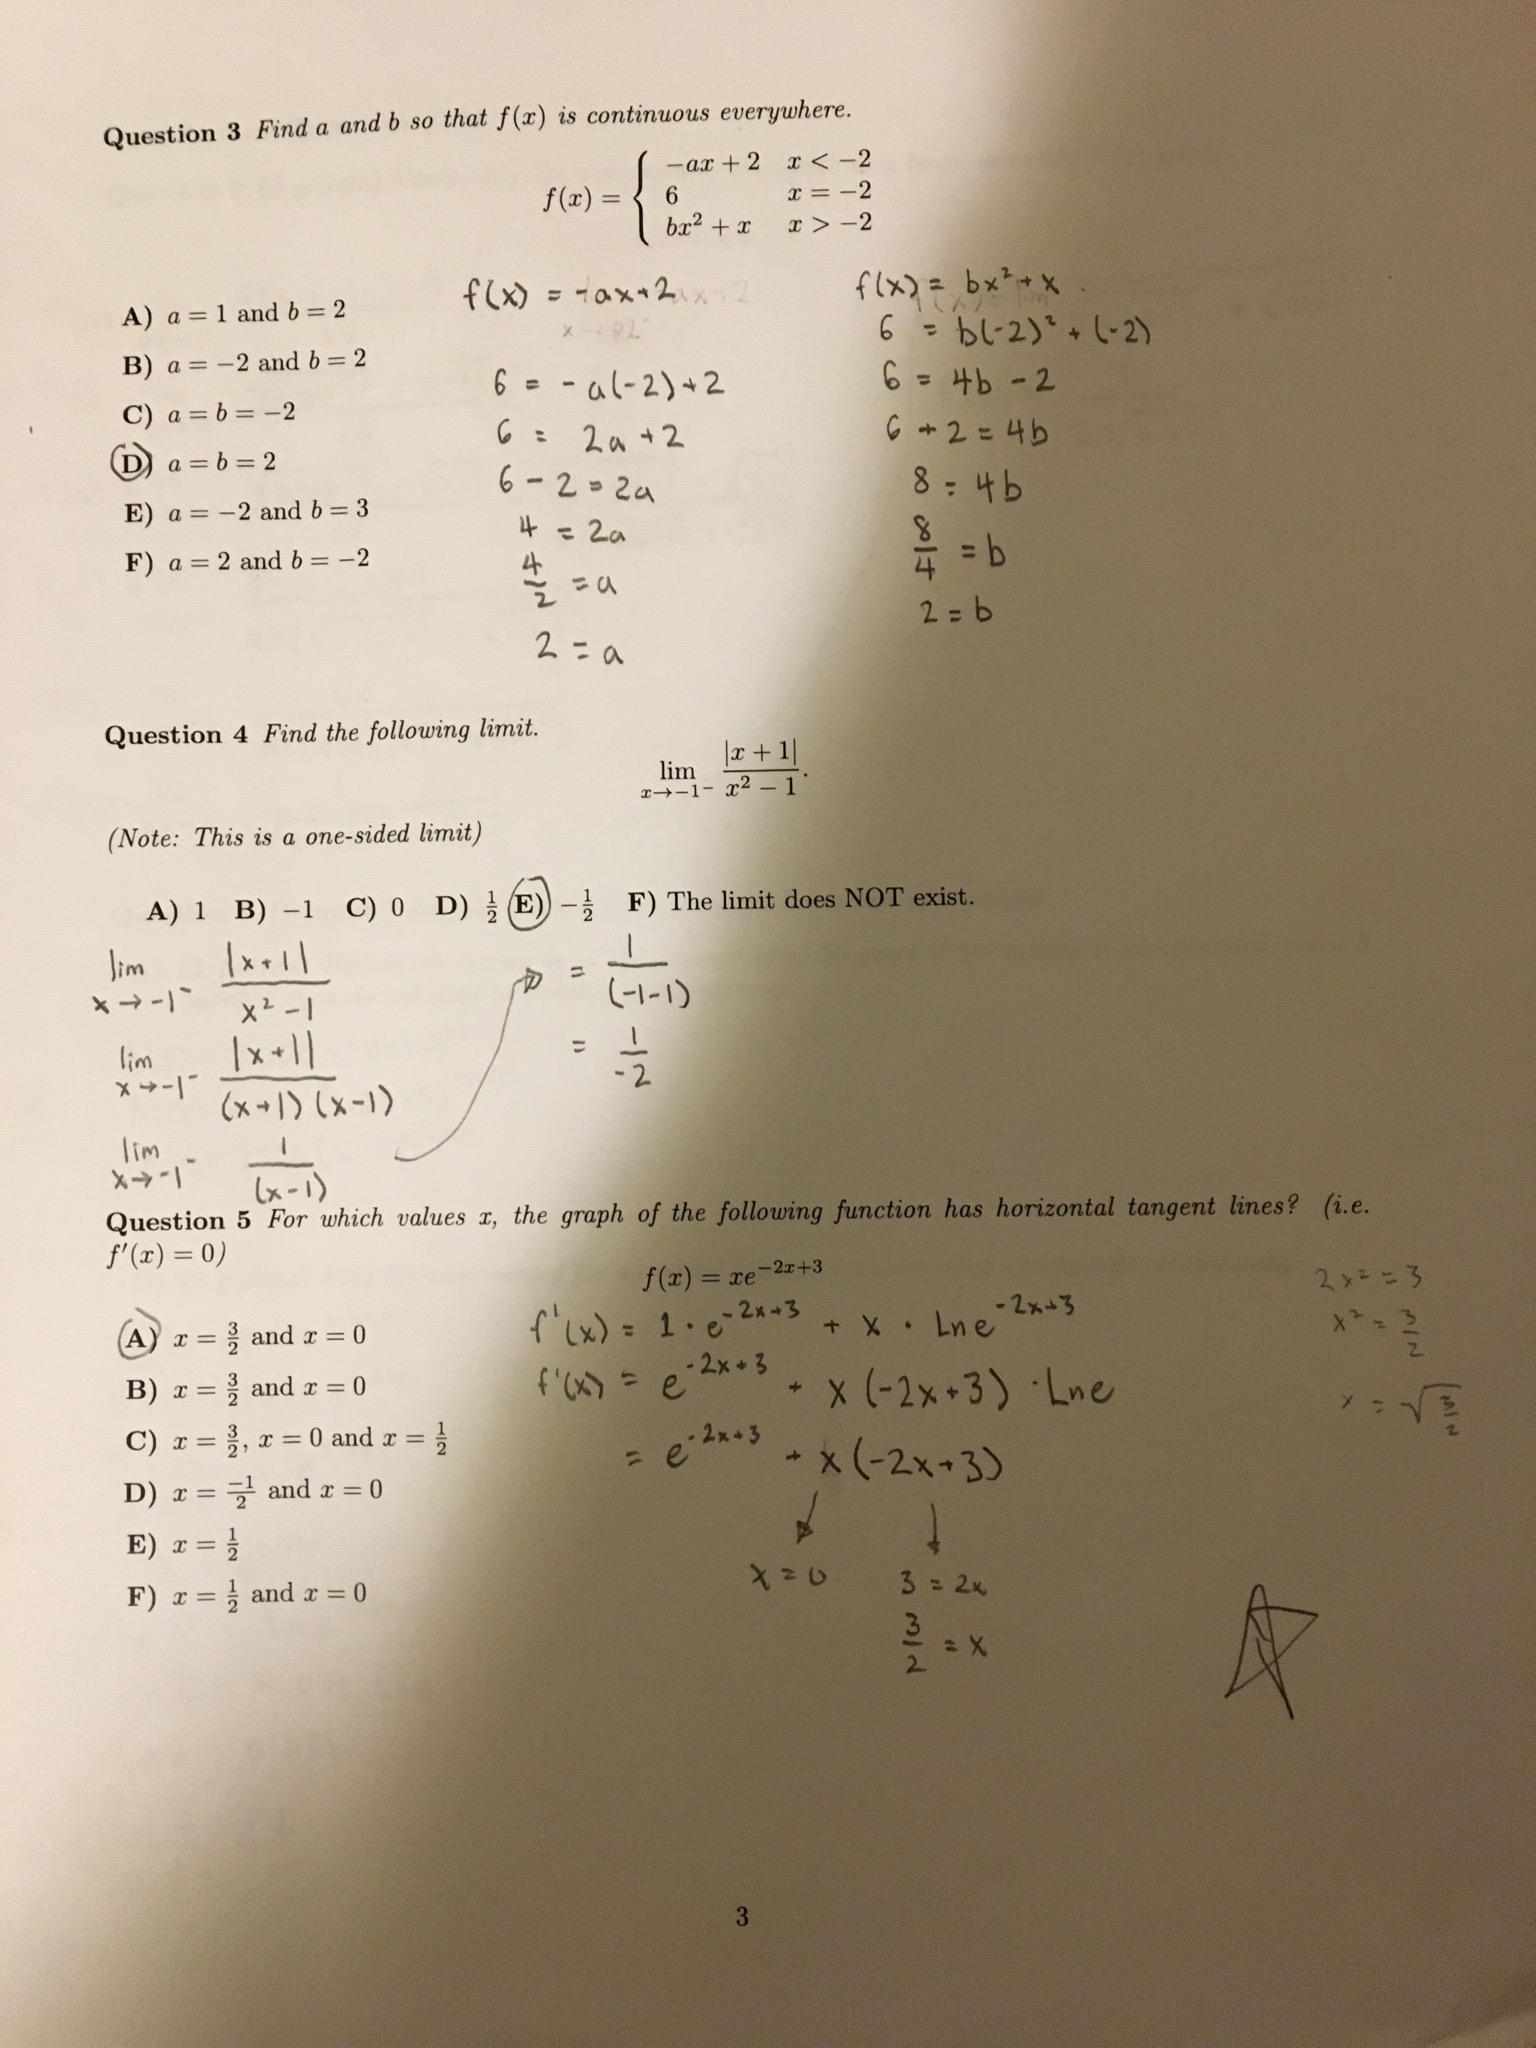 Question 3 Find a and b so that f(x) is continuous everywhere.
f(x) = { −ax + 2 x < −2
6 x = −2
bx² + x x > −2
A) a = 1 and b = 2
B) a = −2 and b = 2
C) a = b = −2
D) a = b = 2
E) a = −2 and b = 3
F) a = 2 and b = −2
f(x) = -ax+2
6 = -a(-2)+2
6 = 2a+2
6 - 2 = 2a
4 = 2a
4/2 = a
2 = a
f(x) = bx² + x
6 = b(-2)² + (-2)
6 = 4b - 2
6 + 2 = 4b
8 = 4b
8/4 = b
2 = b
Question 4 Find the following limit.
lim x→−1⁻ |x + 1| / x² − 1.
(Note: This is a one-sided limit)
A) 1 B) −1 C) 0 D) 1/2 E) −1/2 F) The limit does NOT exist.
lim x→-1⁻ |x+1| / x²-1
lim x→-1⁻ |x+1| / (x+1)(x-1)
lim x→-1⁻ 1 / (x-1)
= 1 / (-1-1)
= 1 / -2
Question 5 For which values x, the graph of the following function has horizontal tangent lines? (i.e.
f′(x) = 0)
f(x) = xe^−2x+3
A) x = 3/2 and x = 0
B) x = 3/2 and x = 0
C) x = 3/2, x = 0 and x = 1/2
D) x = −1/2 and x = 0
E) x = 1/2
F) x = 1/2 and x = 0
f'(x) = 1 · e^-2x+3 + x · Ln e^-2x+3
f'(x) = e^-2x+3 + x (-2x+3) · Lne
= e^-2x+3 + x (-2x+3)
x = 0
3 = 2x
3/2 = x
2x² = 3
x² = 3/2
x = √3/2
3